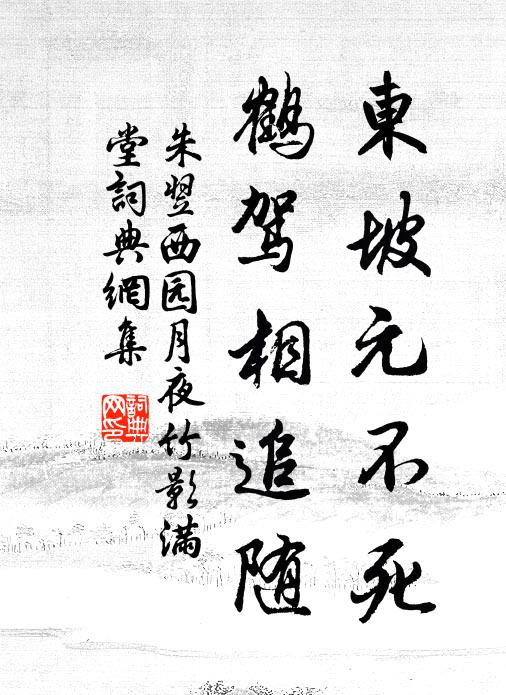 東坡元不死
鶴駕相追随
朱翌西园月夜竹影满
堂詞典網集
詞典网印